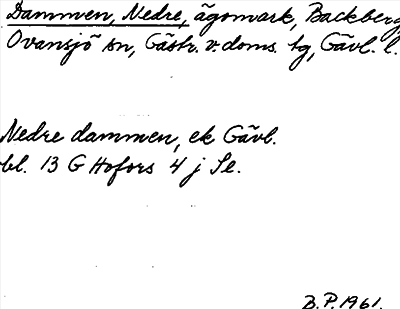 Dammen, Nedre, ägomark, Backberg
Ovansjö sn, Gästr. v. doms. tg, Gävl. l.
Nedre dammen, ek Gävl.
bl. 13 G Hofors 4 j Se.
B.P. 1961.